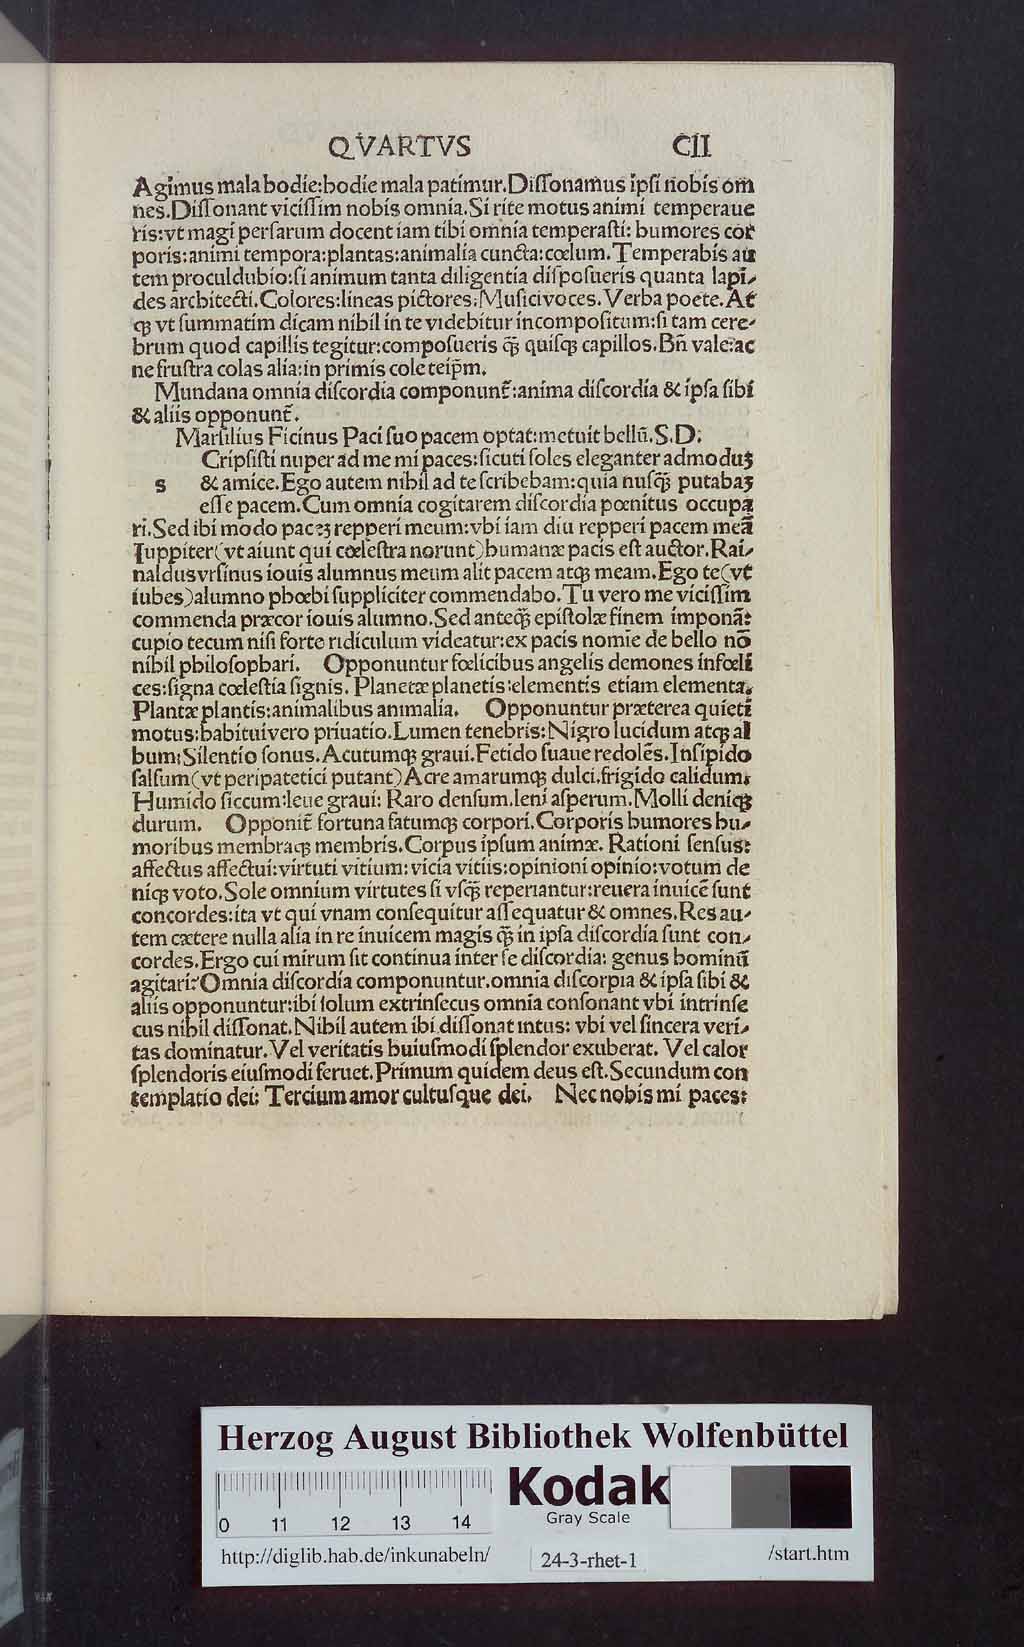 QVARTVS CII
Agimus mala hodie:hodie mala patimur.Dissonamus ipsi nobis om
nes.Dissonant vicissim nobis omnia.Si rite motus animi temperaue
ris:vt magi persarum docent iam tibi omnia temperasti: humores cor
poris:animi tempora:plantas:animalia cuncta:cœlum.Temperabis au
tem proculdubio:si animum tanta diligentia disposueris quanta lapi-
des architecti.Colores:lineas pictores:Musici voces.Verba poete.At
qꝫ vt summatim dicam nihil in te videbitur incompositum:si tam cere-
brum quod capillis tegitur:composueris qꝫ̃ quisqꝫ capillos.Bñ vale:ac
ne frustra colas alia:in primis cole teip̃m.
Mundana omnia discordia componunt̃:anima discordia & ipsa sibi
& aliis opponunt̃.
Marsilius Ficinus Paci suo pacem optat:metuit bellũ.S.D:
Cripsisti nuper ad me mi paces:sicuti soles eleganter admoduꝫ
s & amice.Ego autem nihil ad te scribebam:quia nusqꝫ̃ putabaꝫ
esse pacem.Cum omnia cogitarem discordia pœnitus occupa
ri.Sed ibi modo paceꝫ repperi meum:vbi iam diu repperi pacem meã
Iuppiter(vt aiunt qui cœlestra norunt)humanæ pacis est auctor.Rai-
naldus vrsinus iouis alumnus meum alit pacem atqꝫ meam.Ego te(vt
iubes)alumno phœbi suppliciter commendabo.Tu vero me vicissim
commenda præcor iouis alumno.Sed anteqꝫ̃ epistolæ finem imponã:
cupio tecum nisi forte ridiculum videatur:ex pacis nomĩe de bello nõ
nihil philosophari. Opponuntur fœlicibus angelis demones infœli
ces:signa cœlestia signis. Planetæ planetis:elementis etiam elementa.
Plantæ plantis:animalibus animalia. Opponuntur præterea quieti
motus:habitui vero priuatio.Lumen tenebris:Nigro lucidum atqꝫ al
bum:Silentio sonus.Acutumqꝫ graui.Fetido suaue redolẽs.Insipido
salsum(vt peripatetici putant)Acre amarumqꝫ dulci.frigido calidum.
Humido siccum:leue graui: Raro densum.leni asperum.Molli deniqꝫ
durum. Opponit̃ fortuna fatumqꝫ corpori.Corporis humores hu-
moribus membraqꝫ membris.Corpus ipsum animæ. Rationi sensus:
affectus affectui:virtuti vitium:vicia vitiis:opinioni opinio:votum de
niqꝫ voto.Sole omnium virtutes si vsqꝫ̃ reperiantur:reuera inuicẽ sunt
concordes:ita vt qui vnam consequitur assequatur & omnes.Res au-
tem cætere nulla alia in re inuicem magis qꝫ̃ in ipsa discordia sunt con-
cordes.Ergo cui mirum sit continua inter se discordia: genus hominũ
agitari?Omnia discordia componuntur.omnia discorpia & ipsa sibi &
aliis opponuntur:ibi solum extrinsecus omnia consonant vbi intrinse
cus nihil dissonat.Nihil autem ibi dissonat intus: vbi vel sincera veri-
tas dominatur.Vel veritatis huiusmodi splendor exuberat. Vel calor
splendoris eiusmodi feruet.Primum quidem deus est.Secundum con
templatio dei: Tercium amor cultusque dei. Nec nobis mi paces:
Herzog August Bibliothek Wolfenbüttel
Kodak
Gray Scale
0 11 12 13 14
http://diglib.hab.de/inkunabeln/ 24-3-rhet-1 /start.htm